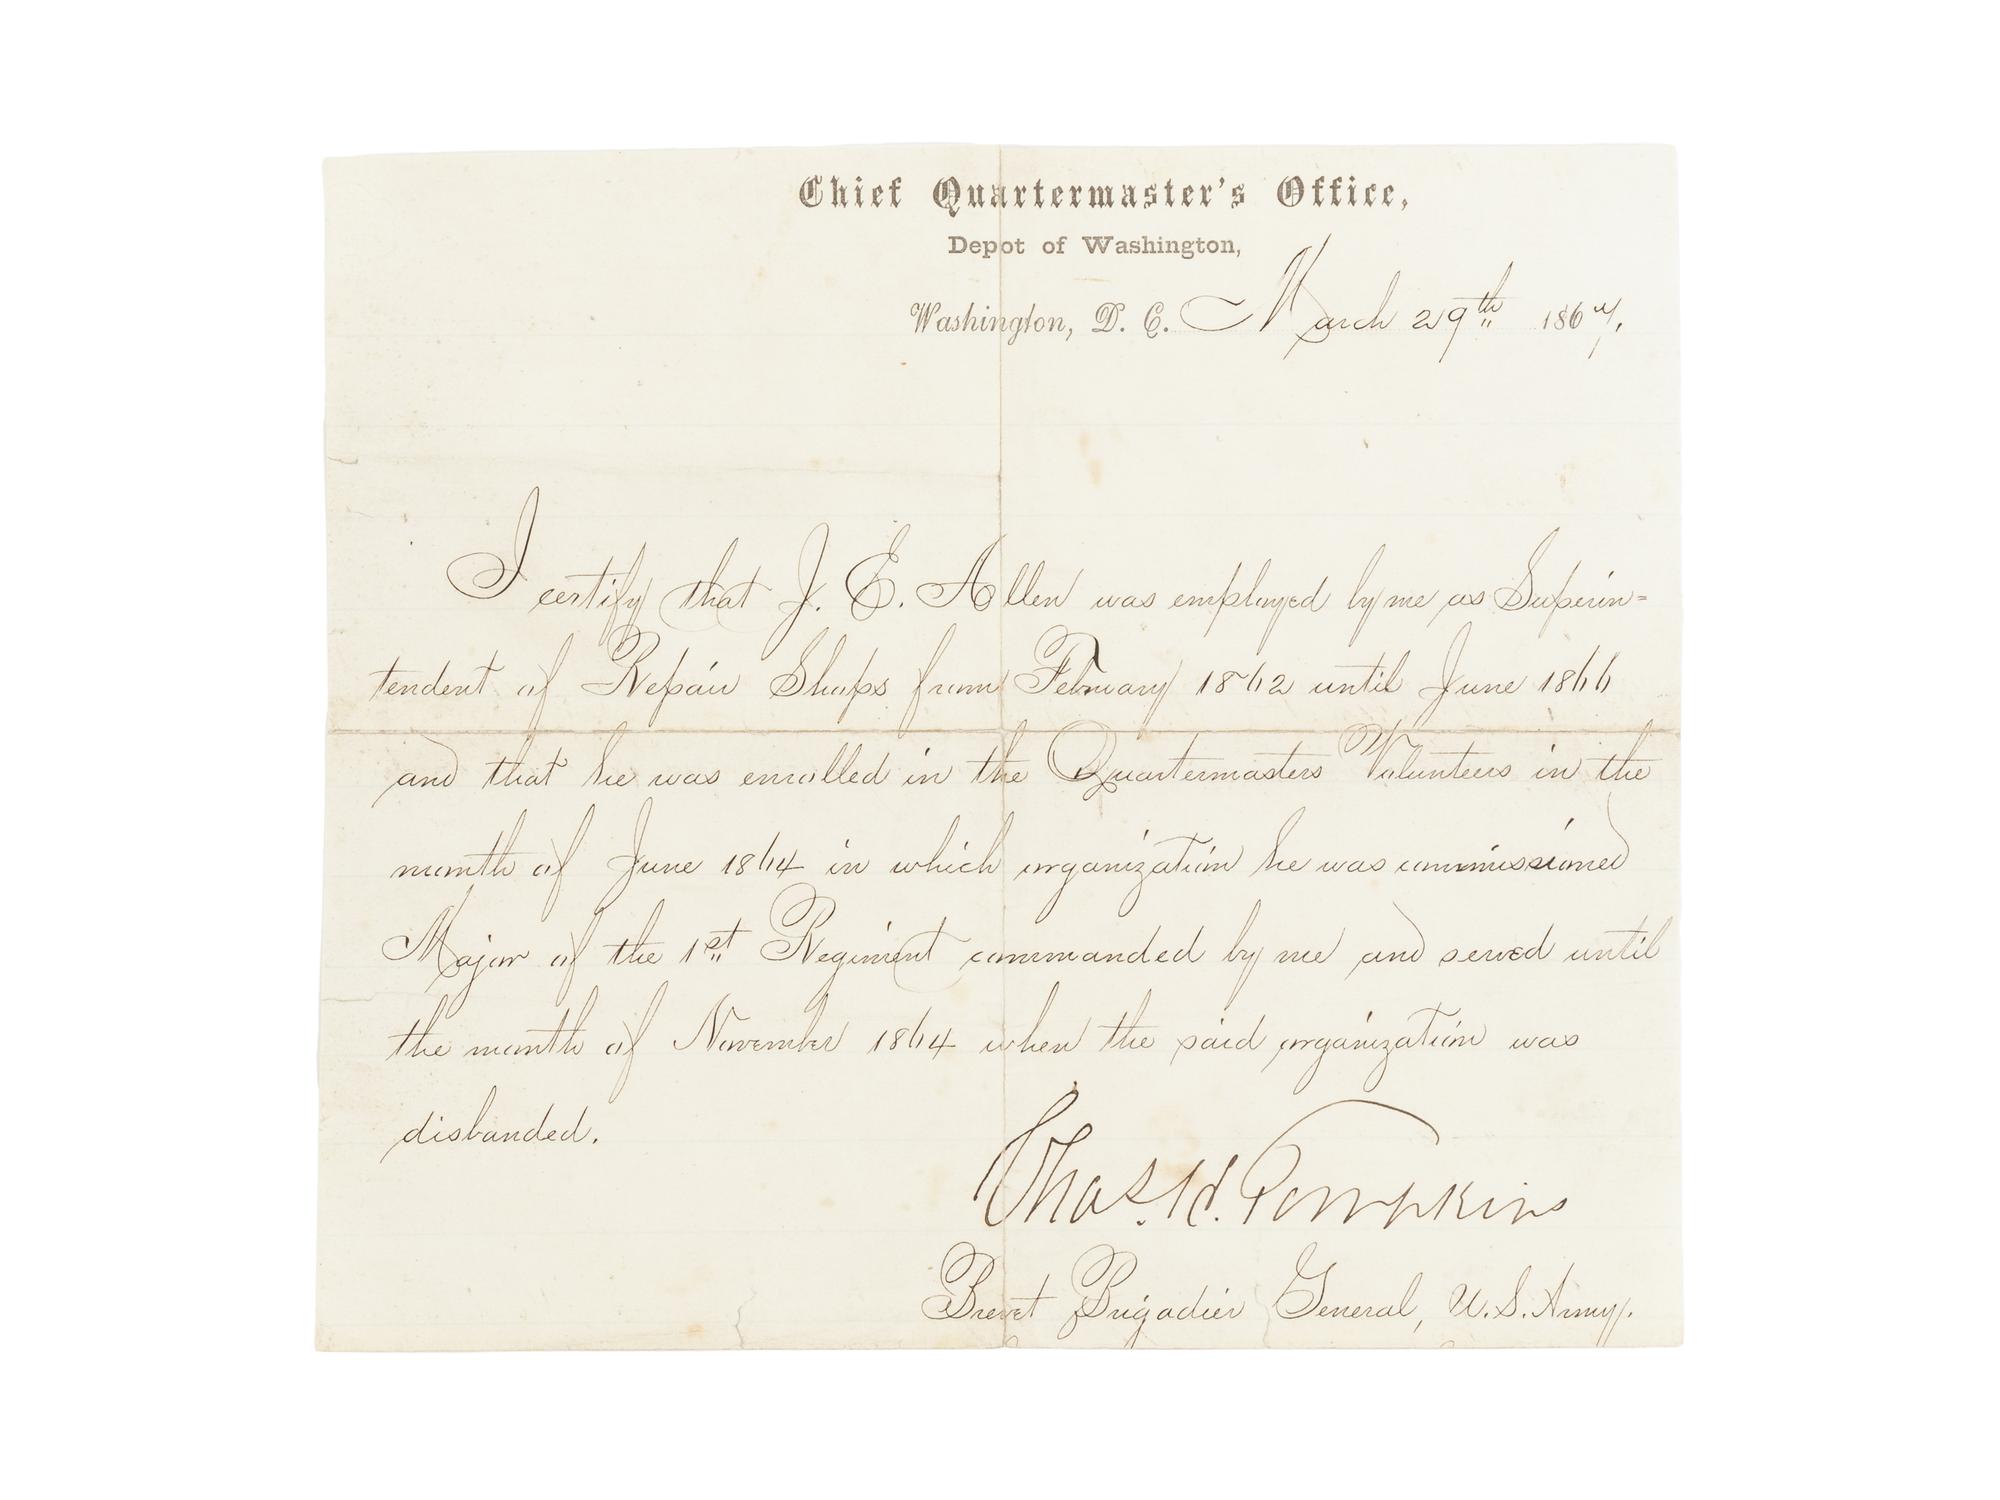 Chief Quartermaster's Office,
Depot of Washington,
Washington, D. C. March 29th 1867.
I certify that J. E. Allen was employed by me as Superin=
tendent of Repair Shops from February 1862 until June 1866
and that he was enrolled in the Quartermasters Volunteers in the
month of June 1864 in which organization he was commissioned
Major of the 1st Regiment commanded by me and served until
the month of November 1864 when the said organization was
disbanded.
Chas. H. Tompkins
Brevet Brigadier General, U. S. Army.